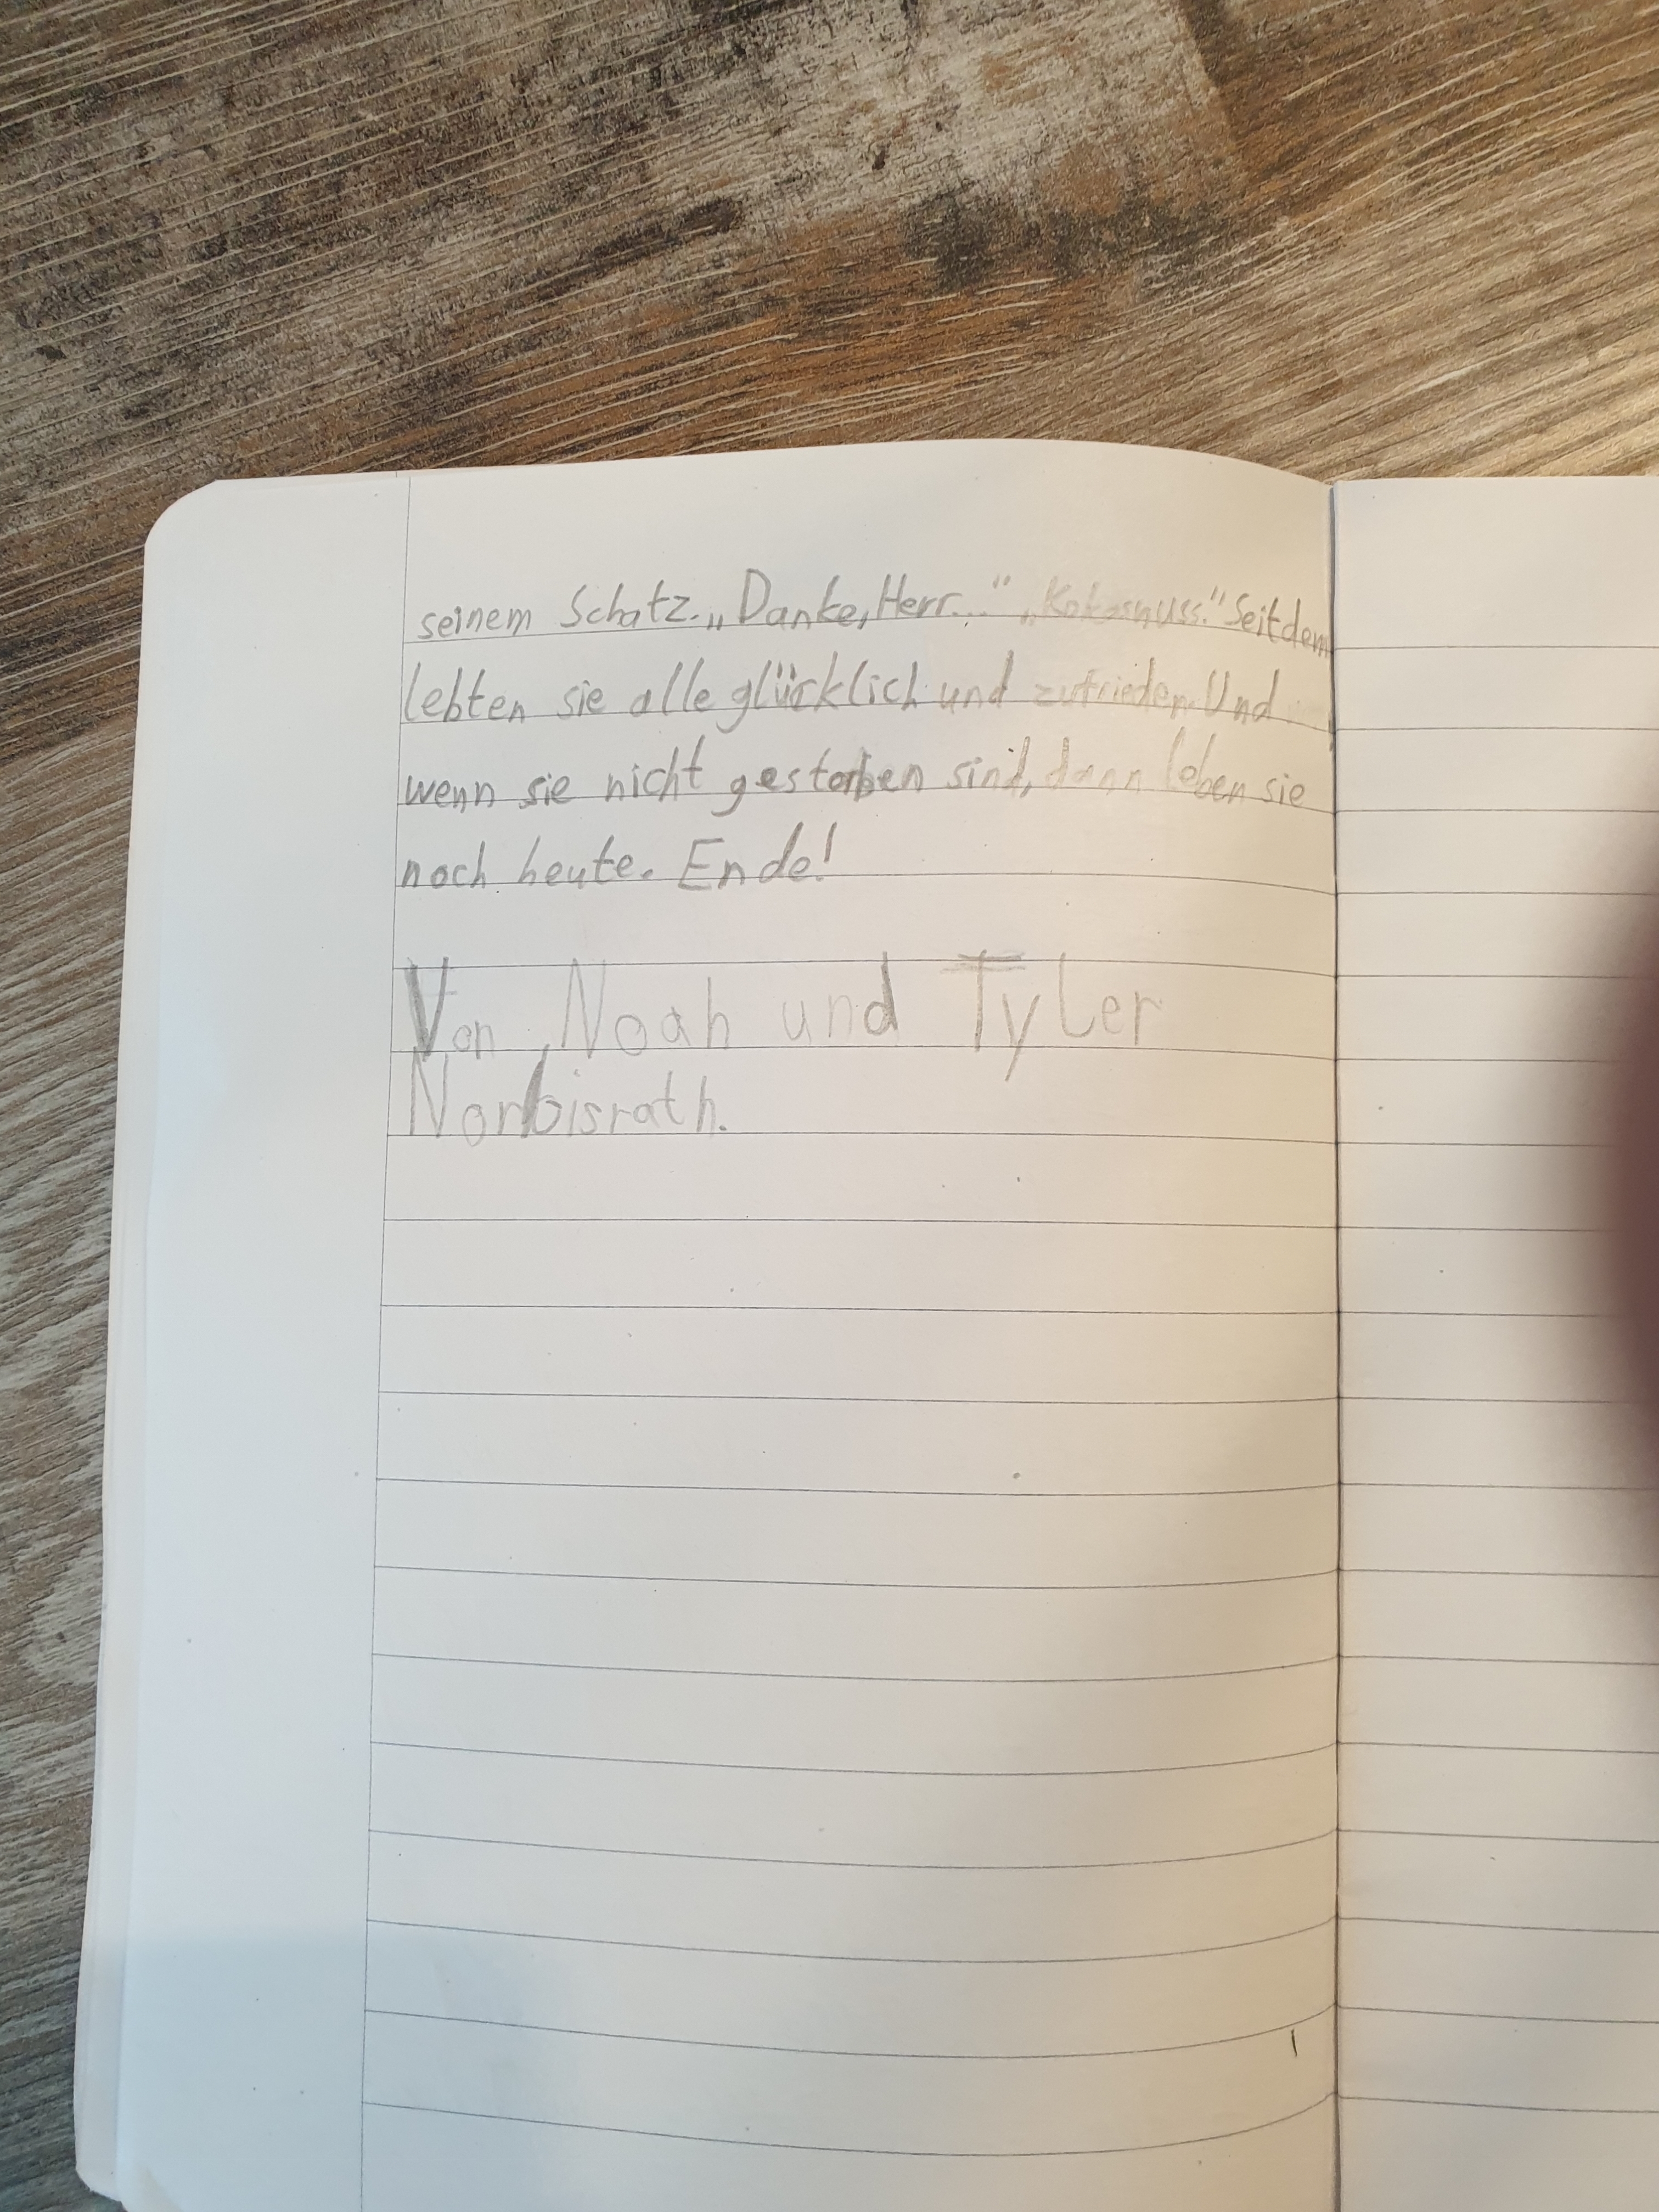 seinem Schatz. „Danke, Herr..." „Kokosnuss." Seitdem
lebten sie alle glücklich und zufrieden. Und
wenn sie nicht gestorben sind, dann leben sie
noch heute. Ende!
Von Noah und Tyler
Norbisrath.